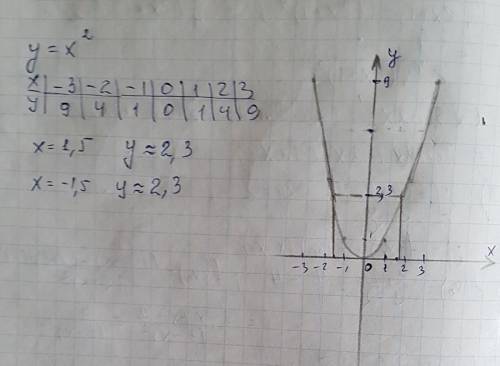 y = x²
x | -3 | -2 | -1 | 0 | 1 | 2 | 3
y | 9 | 4 | 1 | 0 | 1 | 4 | 9
x = 1,5 y ≈ 2,3
x = -1,5 y ≈ 2,3
y
9
2,3
1
x
-3 -2 -1 0 1 2 3